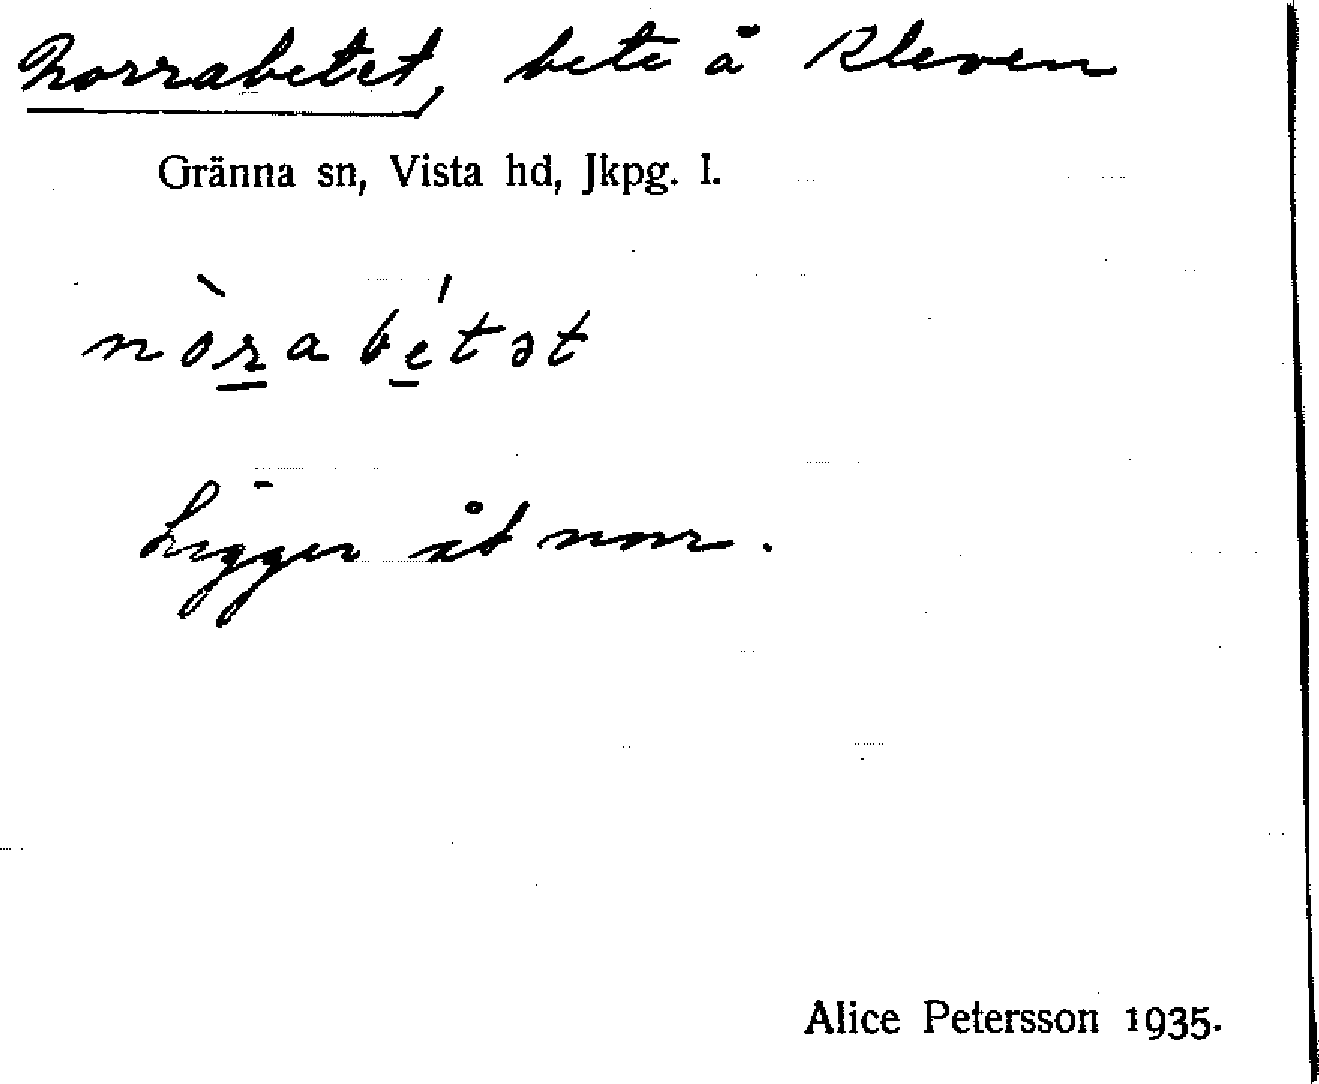 Norrabetet, bete å Kleven
Gränna sn, Vista hd, Jkpg. l.
nòrabétət
Ligger åt norr.
Alice Petersson 1935.